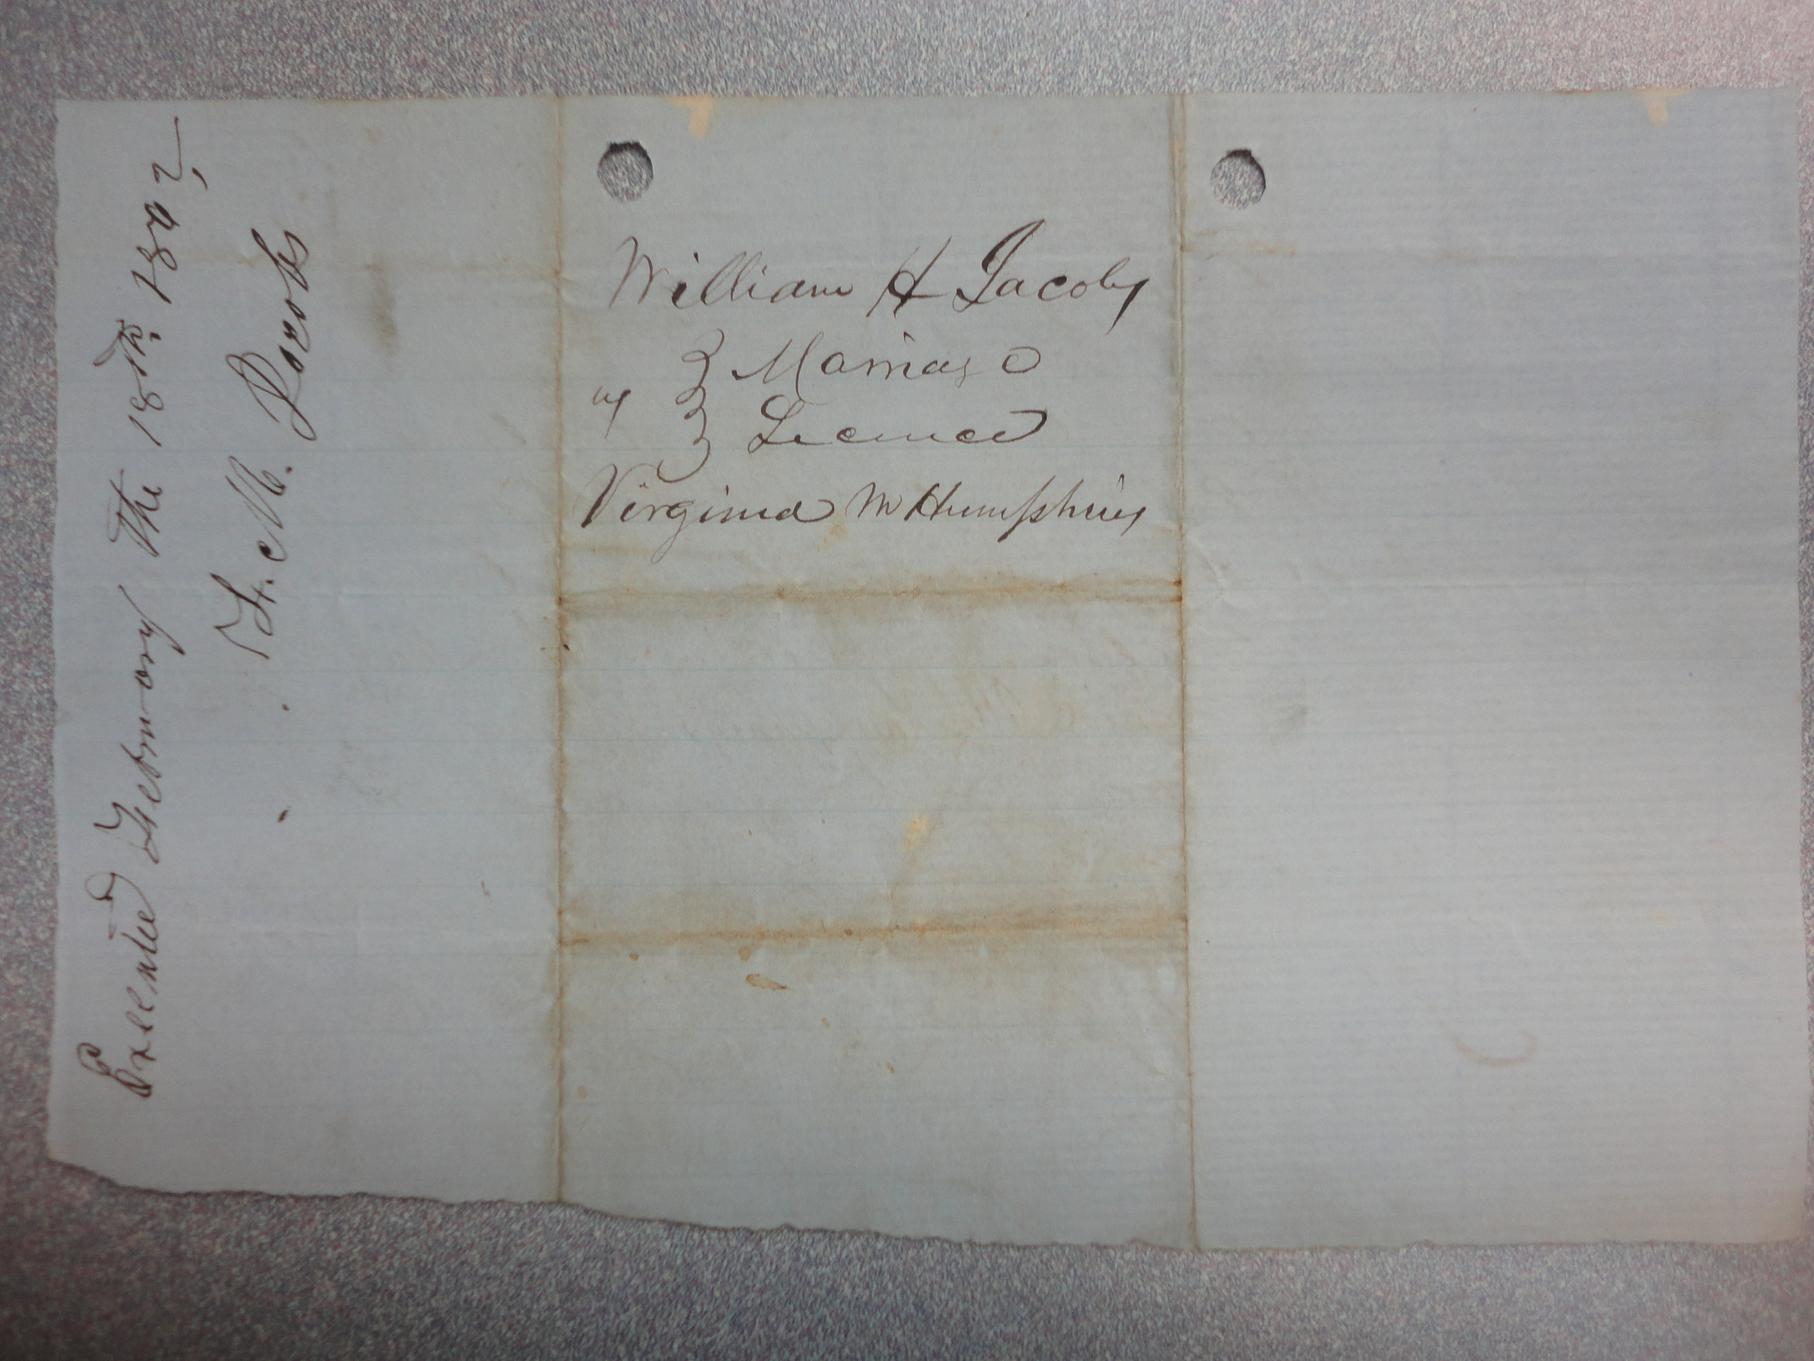 Executed February the 18th. 1862
F. M.
William H Jacoby
Marriage
Licence
Virginia M Humphries